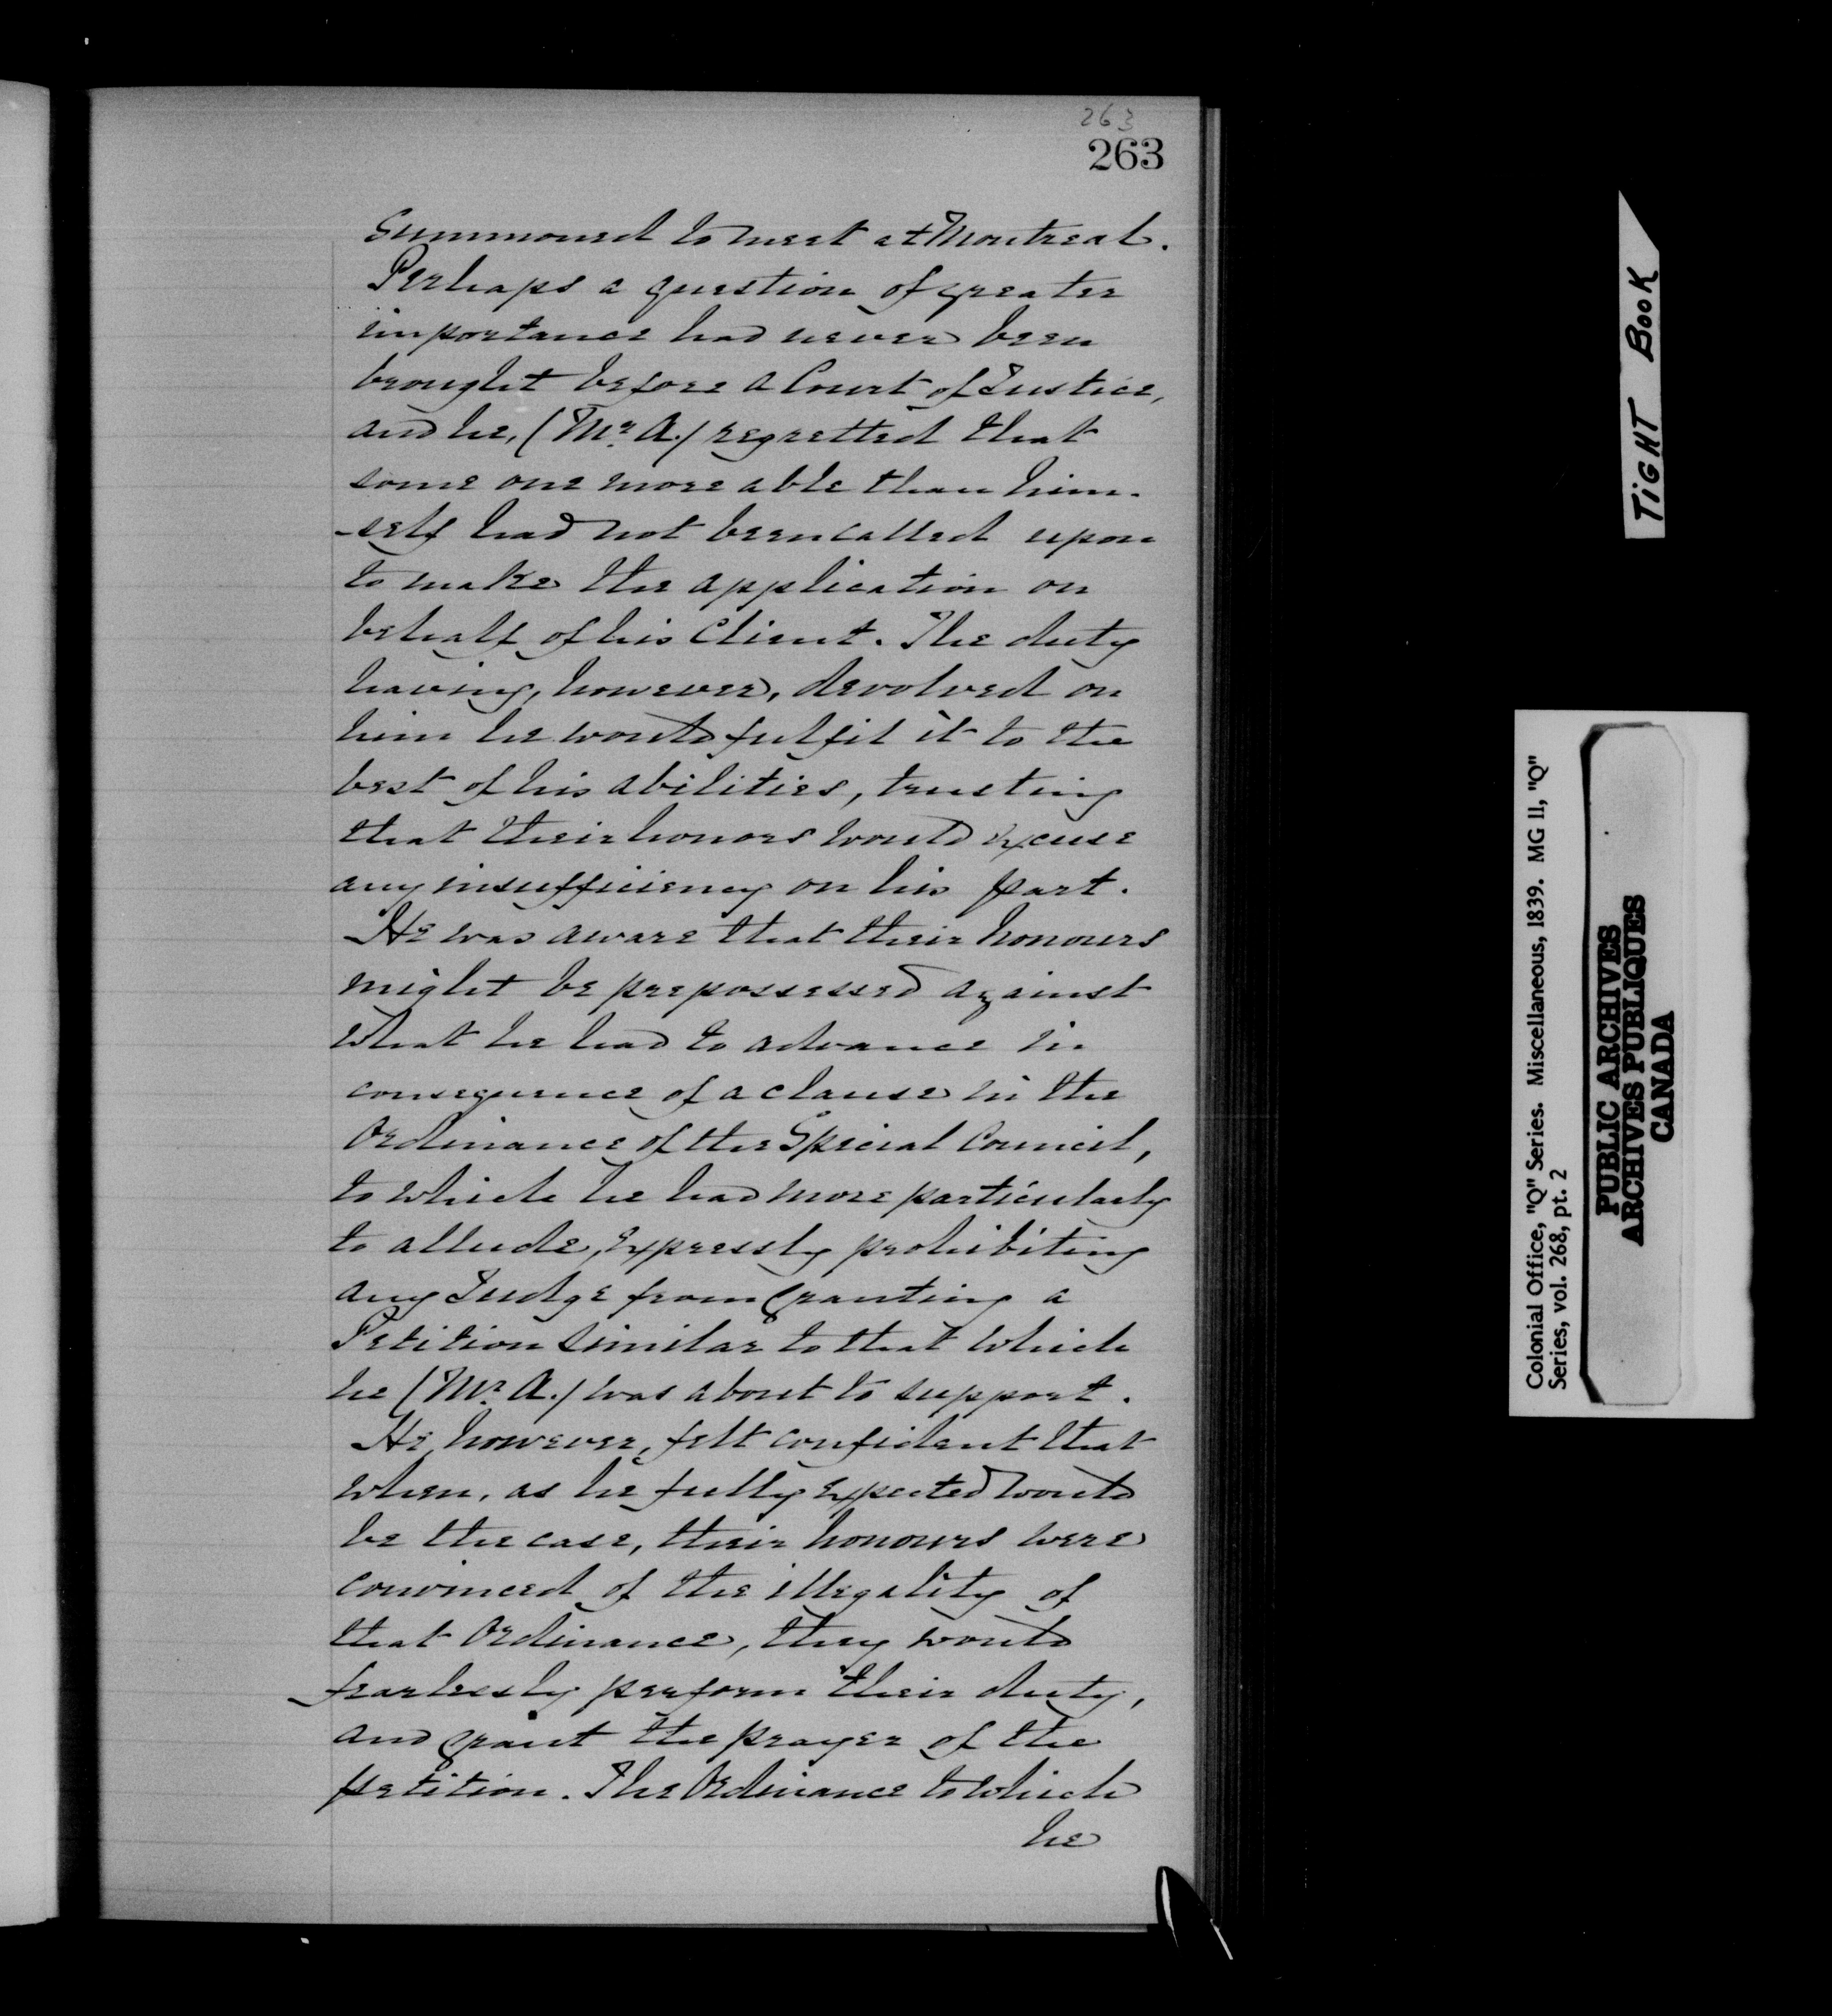 263
263
summoned to meet at Montreal.
Perhaps a question of greater
importance had never been
brought before a Court of Justice,
and he, (Mr. A.) regretted that
some one more able than him-
-self had not been called upon
to make the application on
behalf of his Client. The duty
having, however, devolved on
him he would fulfil it to the
best of his abilities, trusting
that their honors would excuse
any insufficiency on his part.
He was aware that their honours
might be prepossessed against
what he had to advance in
consequence of a clause in the
Ordinance of the Special Council,
to which he had more particularly
to allude, expressly prohibiting
any Judge from granting a
Petition similar to that which
he (Mr. A.) was about to support.
He, however, felt confident that
when, as he fully expected would
be the case, their honours were
convinced of the illegality of
that Ordinance, they would
fearlessly perform their duty,
and grant the prayer of the
petition. The Ordinance to which
he
TIGHT BOOK
Colonial Office, "Q" Series. Miscellaneous, 1839. MG 11, "Q"
Series, vol. 268, pt. 2
PUBLIC ARCHIVES
ARCHIVES PUBLIQUES
CANADA